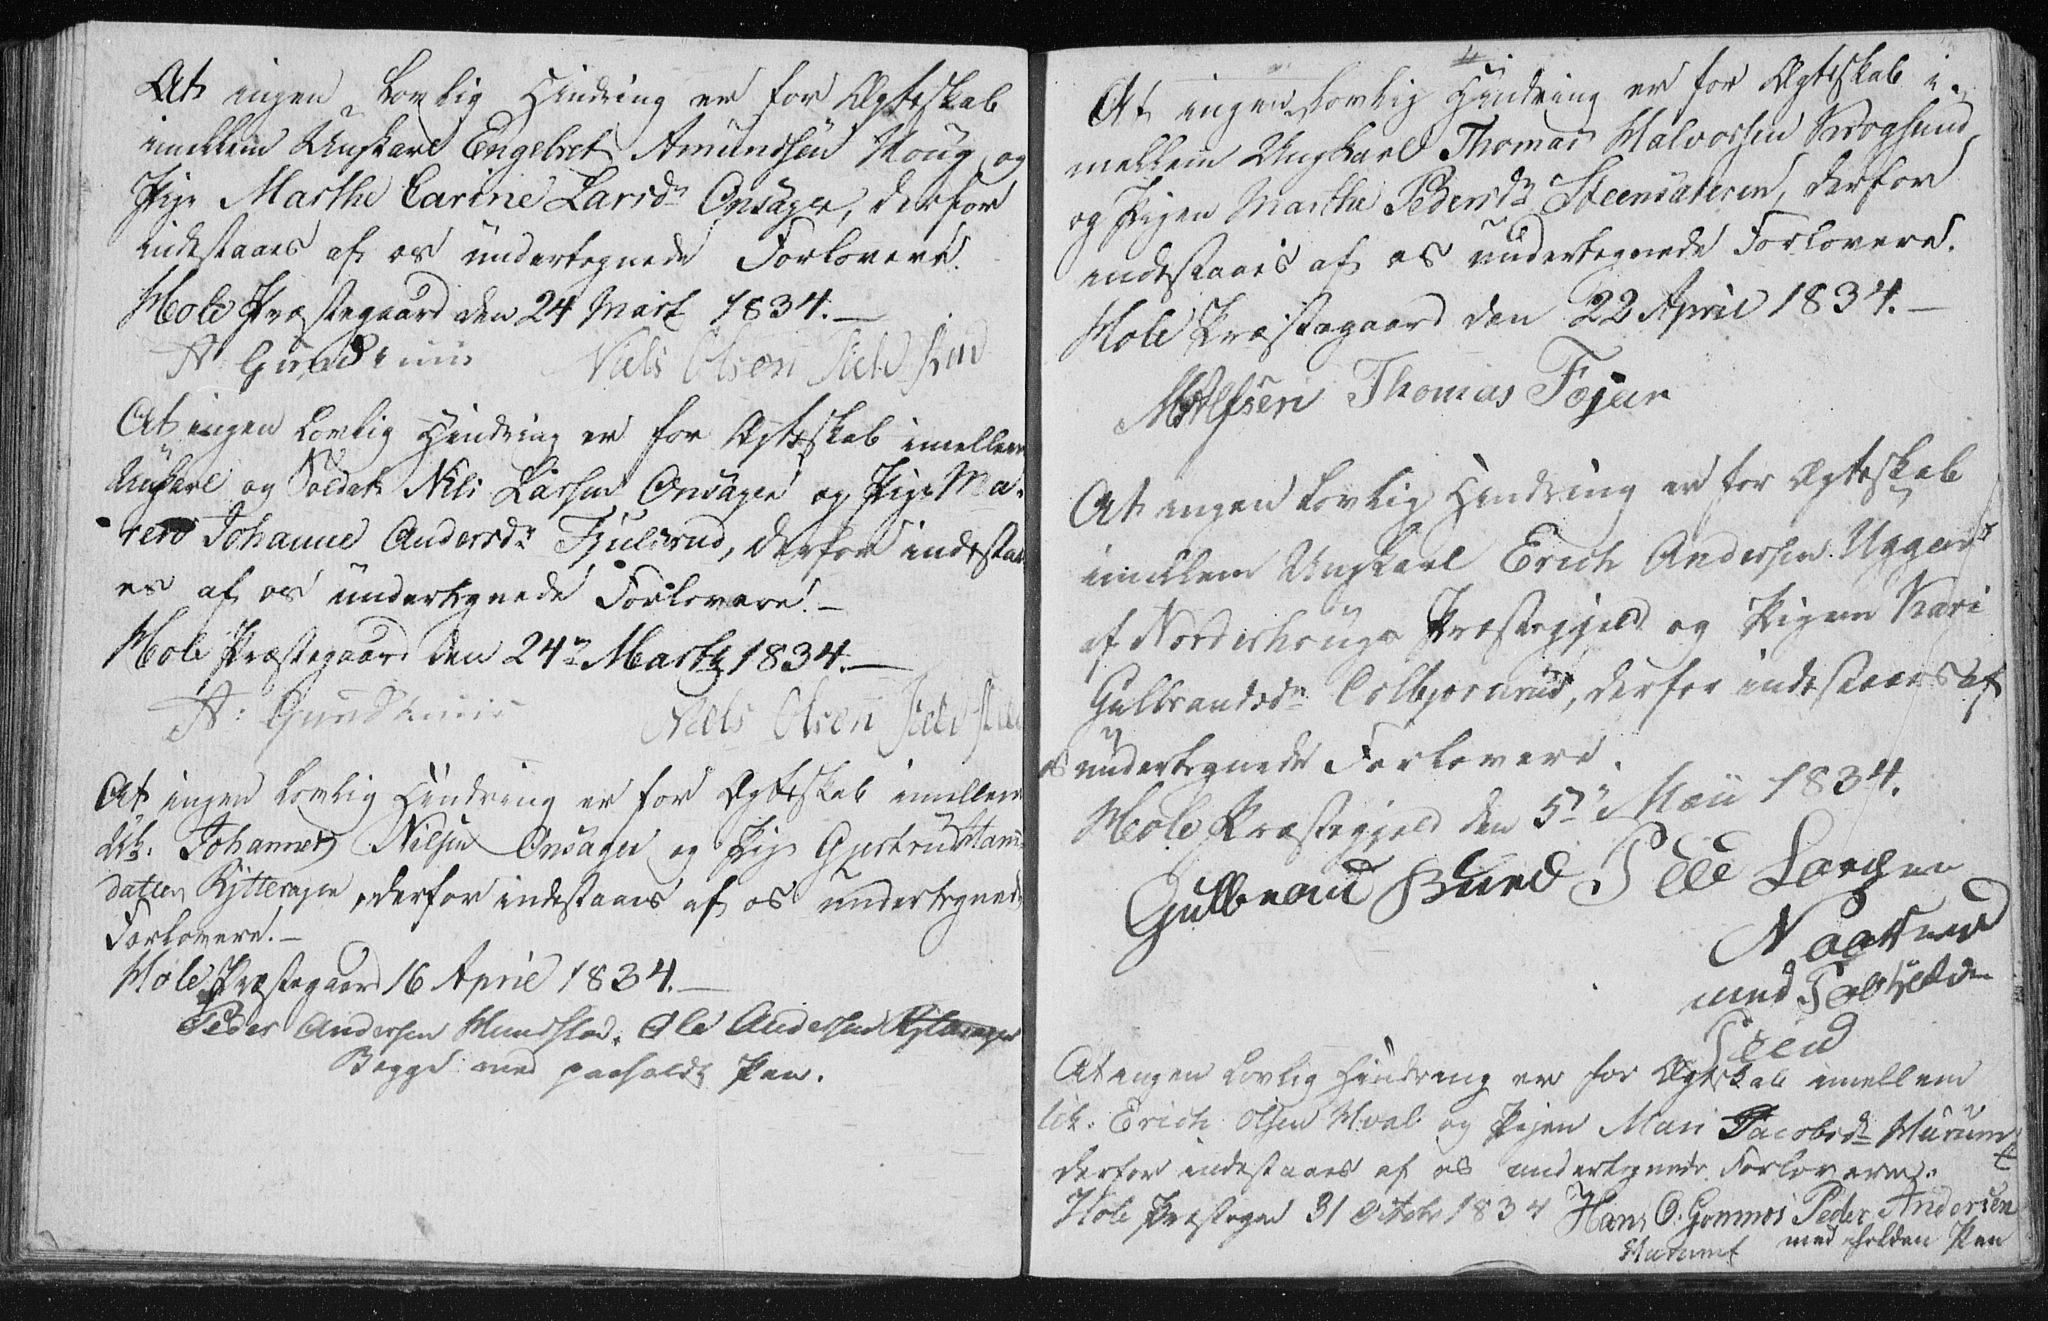 At ingen Lovlig Hindring er for Ægteskab
imellem Ungkarl Engebret Amundsen Houg og
Pige Marthe Carine Larsdr Onsager, derfor
indestaaes af os undertegnede Forlovere.
Hole Præstegaard den 24 Marts 1834.—
A: Niels Olsen
At ingen Lovlig Hindring er for Ægteskab imellem
Unkarl og Soldat Nils Larsen Onsager og Pige Ma-
ren Johanne Andersdr Fjulsrud, derfor indestaa-
es af os undertegnede Forlovere.—
Hole Præstegaard den 24de Marts 1834.—
A: Niels Olsen
At ingen Lovlig Hindring er for Ægteskab imellem
Uk. Johannes Nilsen Onsager og Pige
datter Rytterager, derfor indestaaes af os undertegnede
Forlovere.—
Hole Præstegaard 16 April 1834.—
Peder Andersen Mundstad. Ole Andersen Rytterager
Begge med paaholdt Pen.
At ingen Lovlig Hindring er for Ægteskab i-
mellem Ungkarl Thomas Halvorsen Krogsund,
og Pigen Marthe Pedersdr Steensæteren, derfor
indestaaes af os undertegnede Forlovere.
Hole Præstegaard den 22 April 1834.—
Thomas Fæjur
At ingen Lovlig Hindring er for Ægteskab
imellem Ungkarl Erich Andersen
af Norderhougs Præstegjeld og Pigen Kari
Gulbrandsdr Colbjørnrud, derfor indestaaes af
os undertegnede Forlovere.
Hole Præstegjeld den 5te Maii 1834.
Gulbrand Peder

med
Peend
At ingen Lovlig Hindring er for Ægteskab imellem
Uk. Erich Olsen Hval og Pigen Mari Jacobsdr
derfor indestaaes af os undertegnede Forlovere.
Hole Præstegrd 31 Octobr 1834 Hans O. Gommes Peder Andersen
med holden Pen